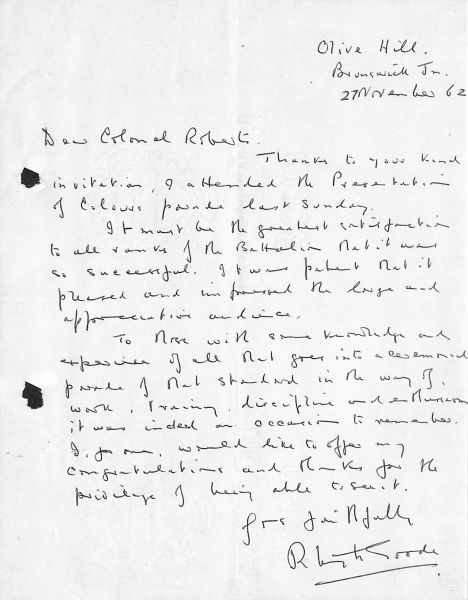 Olive Hill.
Brunswick Jn.
27 November 62
Dear Colonel Roberts.
Thanks to your kind
invitation, I attended the Presentation
of Colours parade last Sunday.
It must be the greatest satisfaction
to all ranks of the Battalion that it was
so successful. It was patent that it
pleased and impressed the large and
appreciative audience.
To those with some knowledge and
experience of all that goes into a ceremonial
parade of that standard in the way of,
work, training, discipline and enthusiasm
it was indeed an occasion to remember.
I, for one, would like to offer my
congratulations and thanks for the
privilege of being able to see it.
Yrs faithfully